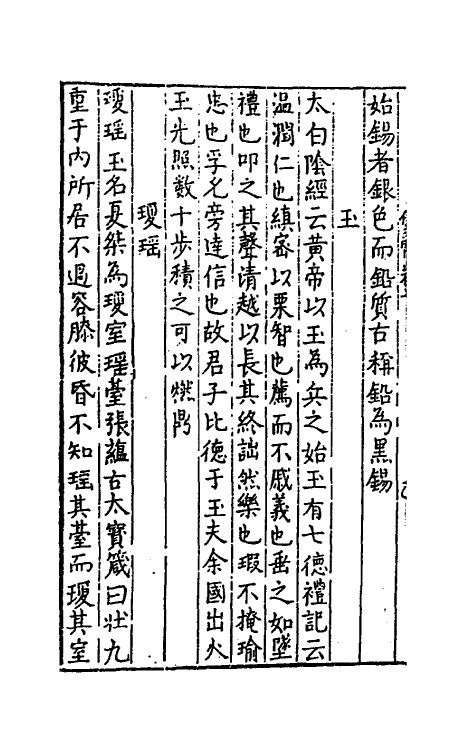 始錫者銀色而鉛質古稱鉛為黑錫
玉
太白陰經云黃帝以玉為兵之始玉有七德禮記云
温潤仁也縝密以栗智也廉而不劌義也垂之如墜
禮也叩之其聲清越以長其終詘然樂也瑕不掩瑜
忠也孚尹旁達信也故君子比德于玉夫余國出火
玉光照數十步積之可以燃鼎
瓊瑶
瓊瑶玉名夏桀為瓊室瑶臺張藴古太寳箴曰壯九
重于内所居不過容膝彼昏不知瑶其臺而瓊其室